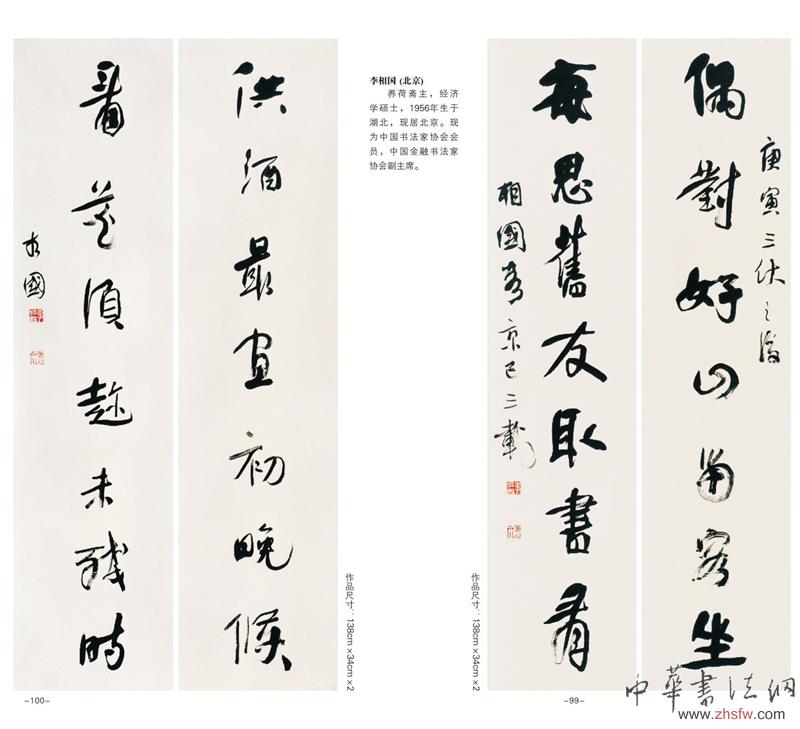 偶對好山留客坐
庚寅三伏之
每思舊友取書看
相國京已三載
作品尺寸：138cm×34cm×2
-99-
李相国 (北京)
养荷斋主，经济
学硕士，1956年生于
湖北，现居北京。现
为中国书法家协会会
员，中国金融书法家
协会副主席。
供酒最宜初晚候
看花須趁未殘時
相國
作品尺寸：138cm×34cm×2
-100-
中華書法網
www.zhsfw.com